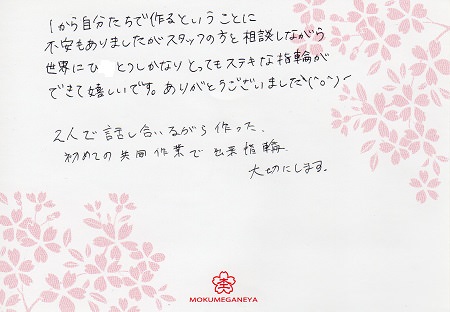 1から自分たちで作るということに
不安もありましたがスタッフの方と相談しながら
世界にひとつしかなりとってもステキな指輪が
できて嬉しいです。ありがとうございました(^o^)
2人で話し合いながら作った
初めての共同作業で出来指輪
大切にします。
MOKUMEGANEYA